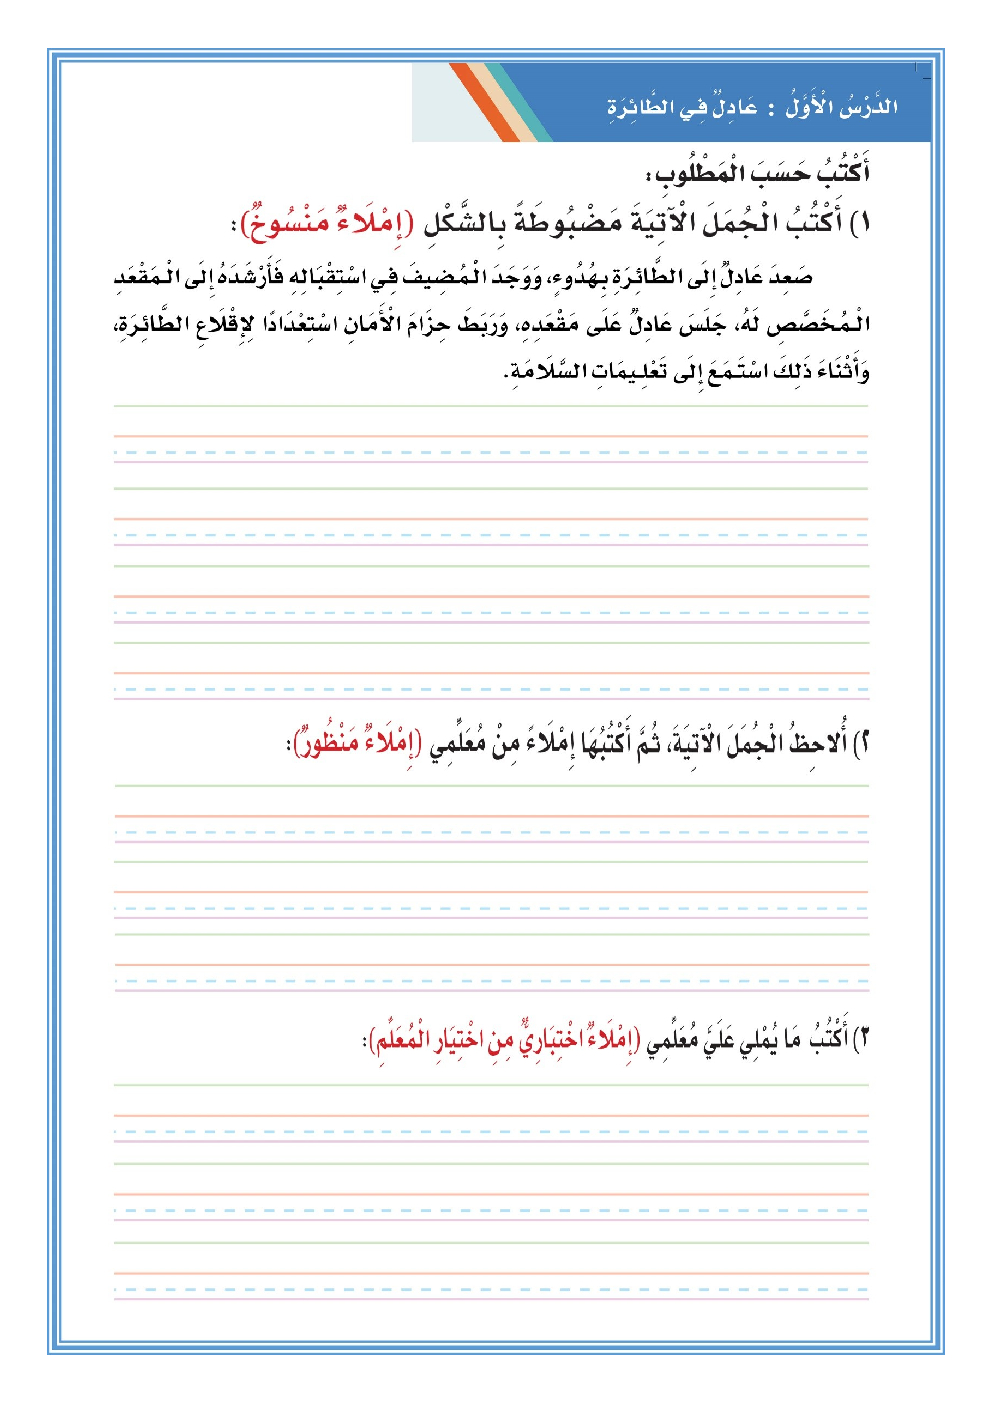 الدَّرْسُ الْأَوَّلُ : عَادِلٌ فِي الطَّائِرَةِ
أَكْتُبُ حَسَبَ الْمَطْلُوبِ:
١) أَكْتُبُ الْجُمَلَ الْآتِيَةَ مَضْبُوطَةً بِالشَّكْلِ (إِمْلَاءٌ مَنْسُوخٌ):
صَعِدَ عَادِلٌ إِلَى الطَّائِرَةِ بِهُدُوءٍ، وَوَجَدَ الْمُضِيفَ فِي اسْتِقْبَالِهِ فَأَرْشَدَهُ إِلَى الْمَقْعَدِ
الْمُخَصَّصِ لَهُ، جَلَسَ عَادِلٌ عَلَى مَقْعَدِهِ، وَرَبَطَ حِزَامَ الْأَمَانِ اسْتِعْدَادًا لِإِقْلَاعِ الطَّائِرَةِ،
وَأَثْنَاءَ ذَلِكَ اسْتَمَعَ إِلَى تَعْلِيمَاتِ السَّلَامَةِ.
٢) أُلاحِظُ الْجُمَلَ الْآتِيَةَ، ثُمَّ أَكْتُبُهَا إِمْلَاءً مِنْ مُعَلِّمِي (إِمْلَاءٌ مَنْظُورٌ):
٣) أَكْتُبُ مَا يُمْلِي عَلَيَّ مُعَلِّمِي (إِمْلَاءٌ اخْتِبَارِيٌّ مِنِ اخْتِيَارِ الْمُعَلِّمِ):